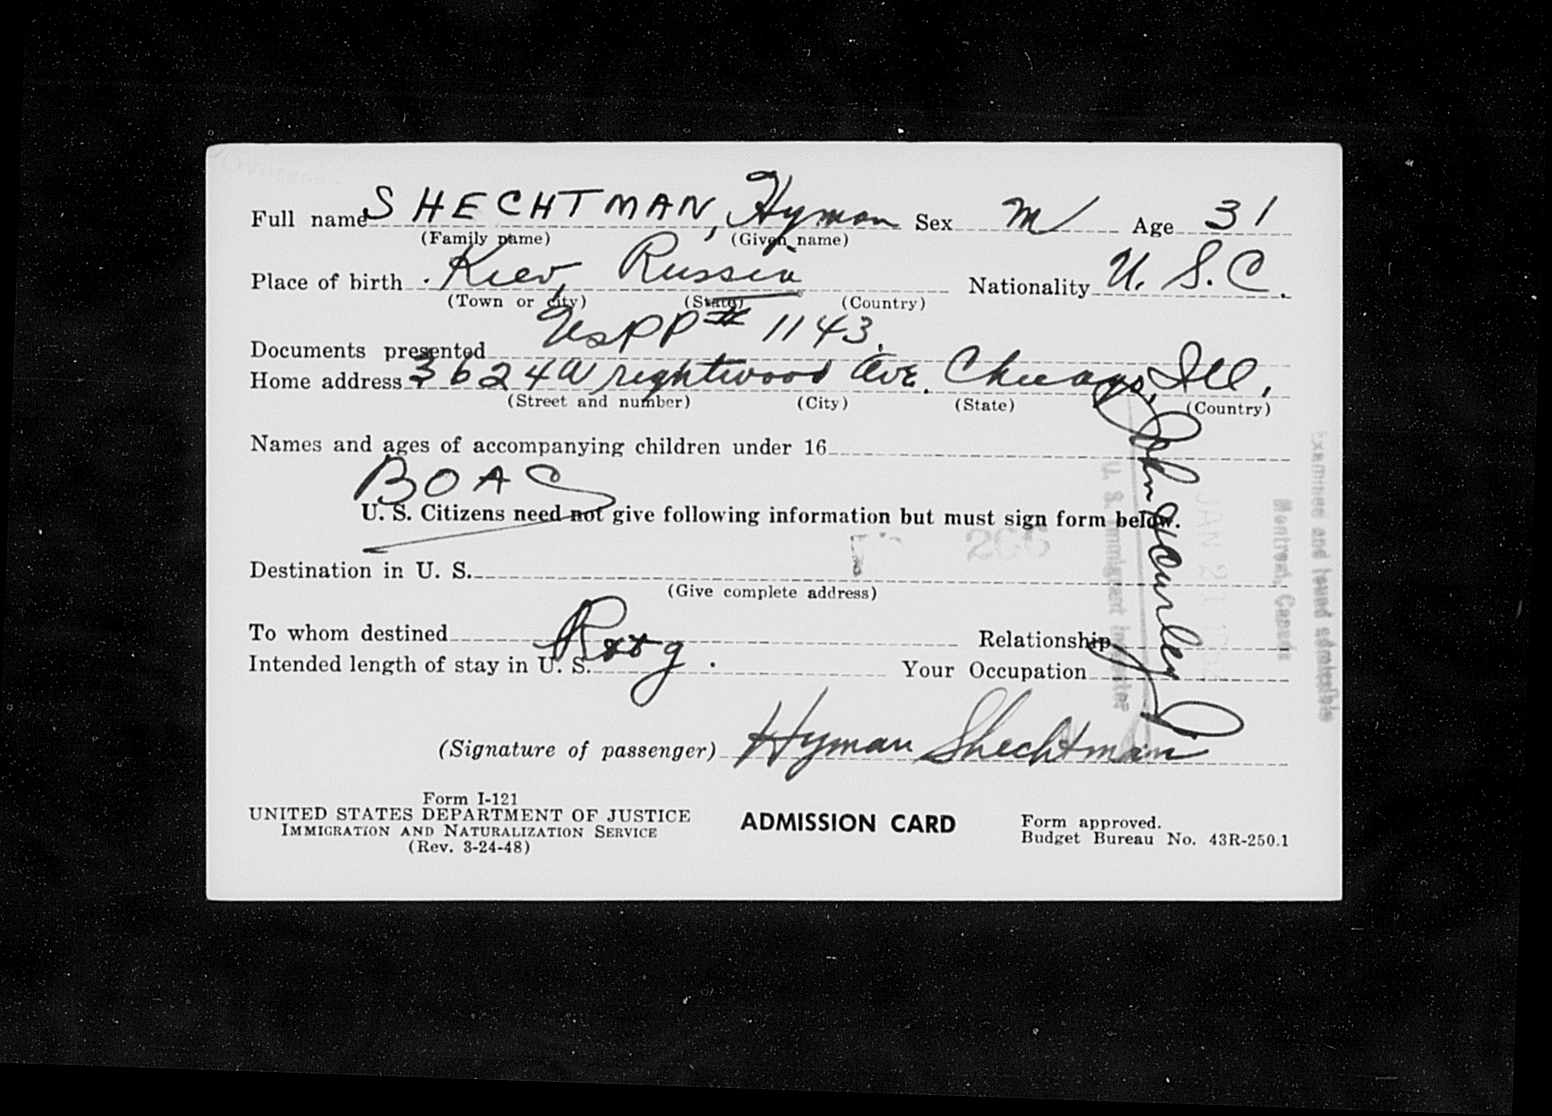 Full name SHECHTMAN, Hyman Sex M Age 31
(Family name) (Given name)
Place of birth Kiev, Russia Nationality U. S. C.
(Town or city) (State) (Country)
Documents presented UsPP# 1143.
Home address 3624 Wrightwood Ave. Chicago, Ill.
(Street and number) (City) (State) (Country)
Names and ages of accompanying children under 16
BOAS
U. S. Citizens need not give following information but must sign form below.
Destination in U. S.
(Give complete address)
To whom destined Relationship
Intended length of stay in U. S. Your Occupation
(Signature of passenger) Hyman Shechtman
Form I-121
UNITED STATES DEPARTMENT OF JUSTICE
IMMIGRATION AND NATURALIZATION SERVICE
(Rev. 3-24-48)
ADMISSION CARD
Form approved.
Budget Bureau No. 43R-250.1
Examined and found admissible
Montreal, Canada
JAN 21
U. S. Immigrant Inspector